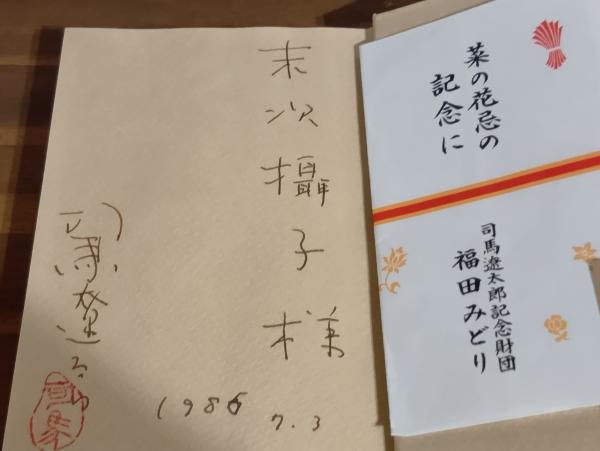 末次攝子様
司馬遼太郎
1986
7.3
菜の花忌の
記念に
司馬遼太郎記念財団
福田みどり